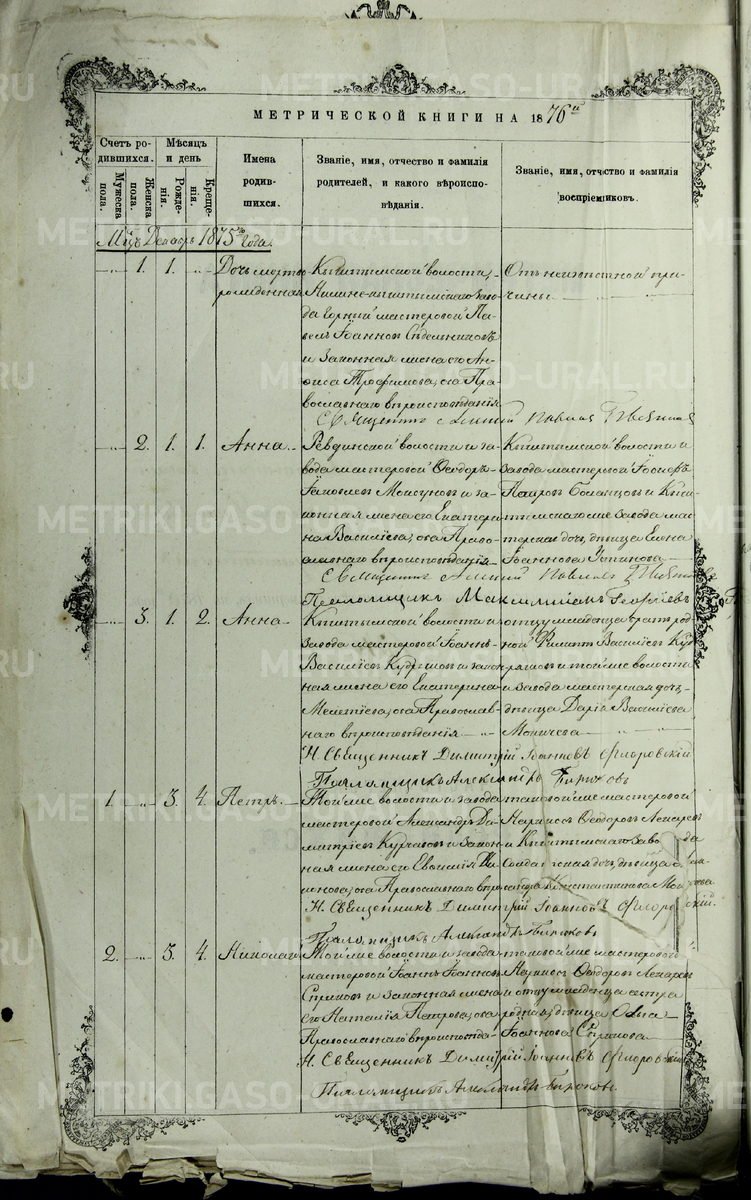 МЕТРИЧЕСКОЙ КНИГИ НА 1876й
Счетъ родившихся.
Мужеска пола.
Женска пола.
Мѣсяцъ и день
Рожденія.
Крещенія.
Имена родившихся.
Званіе, имя, отчество и фамилія родителей, и какого вѣроисповѣданія.
Званіе, имя, отчество и фамилія воспріемниковъ.
Мцъ Декабрь 1875го Года.
1. 1.
Дочь мертво
рожденная
Кыштымской волости,
Нижне-кыштымскаго заво
да Горный мастеровой Па
велъ Іоанновъ
и законная жена его Ан
фиса Трофимова, оба Пра
вославнаго вѣроисповѣданія
Отъ неизвѣстной при
чины
2. 1. 1. Анна.
Ревдинской волости и за
вода мастеровой Ѳеодоръ
Іаковлевъ и за
конная жена его Екатери
на Васильева, оба Право
славнаго вѣроисповѣданія
Кыштымской волости и
завода мастеровой Іосифъ
и Кыш
тымскаго же завода мас
терская дочь, дѣвица Елена
Іоаннова Устинова
Псаломщикъ Максимиліанъ Георгіевъ
3. 1. 2. Анна
Кыштымской волости и
завода мастеровой Іоаннъ
Васильевъ Кудряшовъ и закон
ная жена его Екатерина
Мелетіева, оба Православ
наго вѣроисповѣданія
отцу младенца братъ род
ной Филиппъ Васильевъ Куд
ряшовъ и той же волости
и завода мастерская дочь,
дѣвица Дарія Васильева
Н. Священникъ Димитрій Іоанновъ Флоровскій
Псаломщикъ Александръ Бирюковъ
1. 3. 4. Петръ.
Той же волости и завода
мастеровой Александръ Ди
митріевъ и закон
ная жена его Евфимія
оба Православнаго вѣро
таковой же мастеровой
Наркисъ Ѳеодоровъ
и Кыштымскаго заво да
Солдатская дочь, дѣвица
Константинова
Н. Священникъ Димитрій Іоанновъ Флоровскій.
Псаломщикъ Александръ Бирюковъ
2. 3. 4. Николай
Той же волости и завода
мастеровой Іоаннъ Іоанновъ
Спириновъ и законная жена
его Наталія Петрова, оба
Православнаго вѣроисповѣда
таковой же мастеровой
Наркисъ Ѳеодоровъ
и отцу младенца сестра
родная, дѣвица
Іоаннова Спиринова
Н. Священникъ Димитрій Іоанновъ Флоровскій
Псаломщикъ Александръ Бирюковъ
METRIKI.GASO-URAL.RU